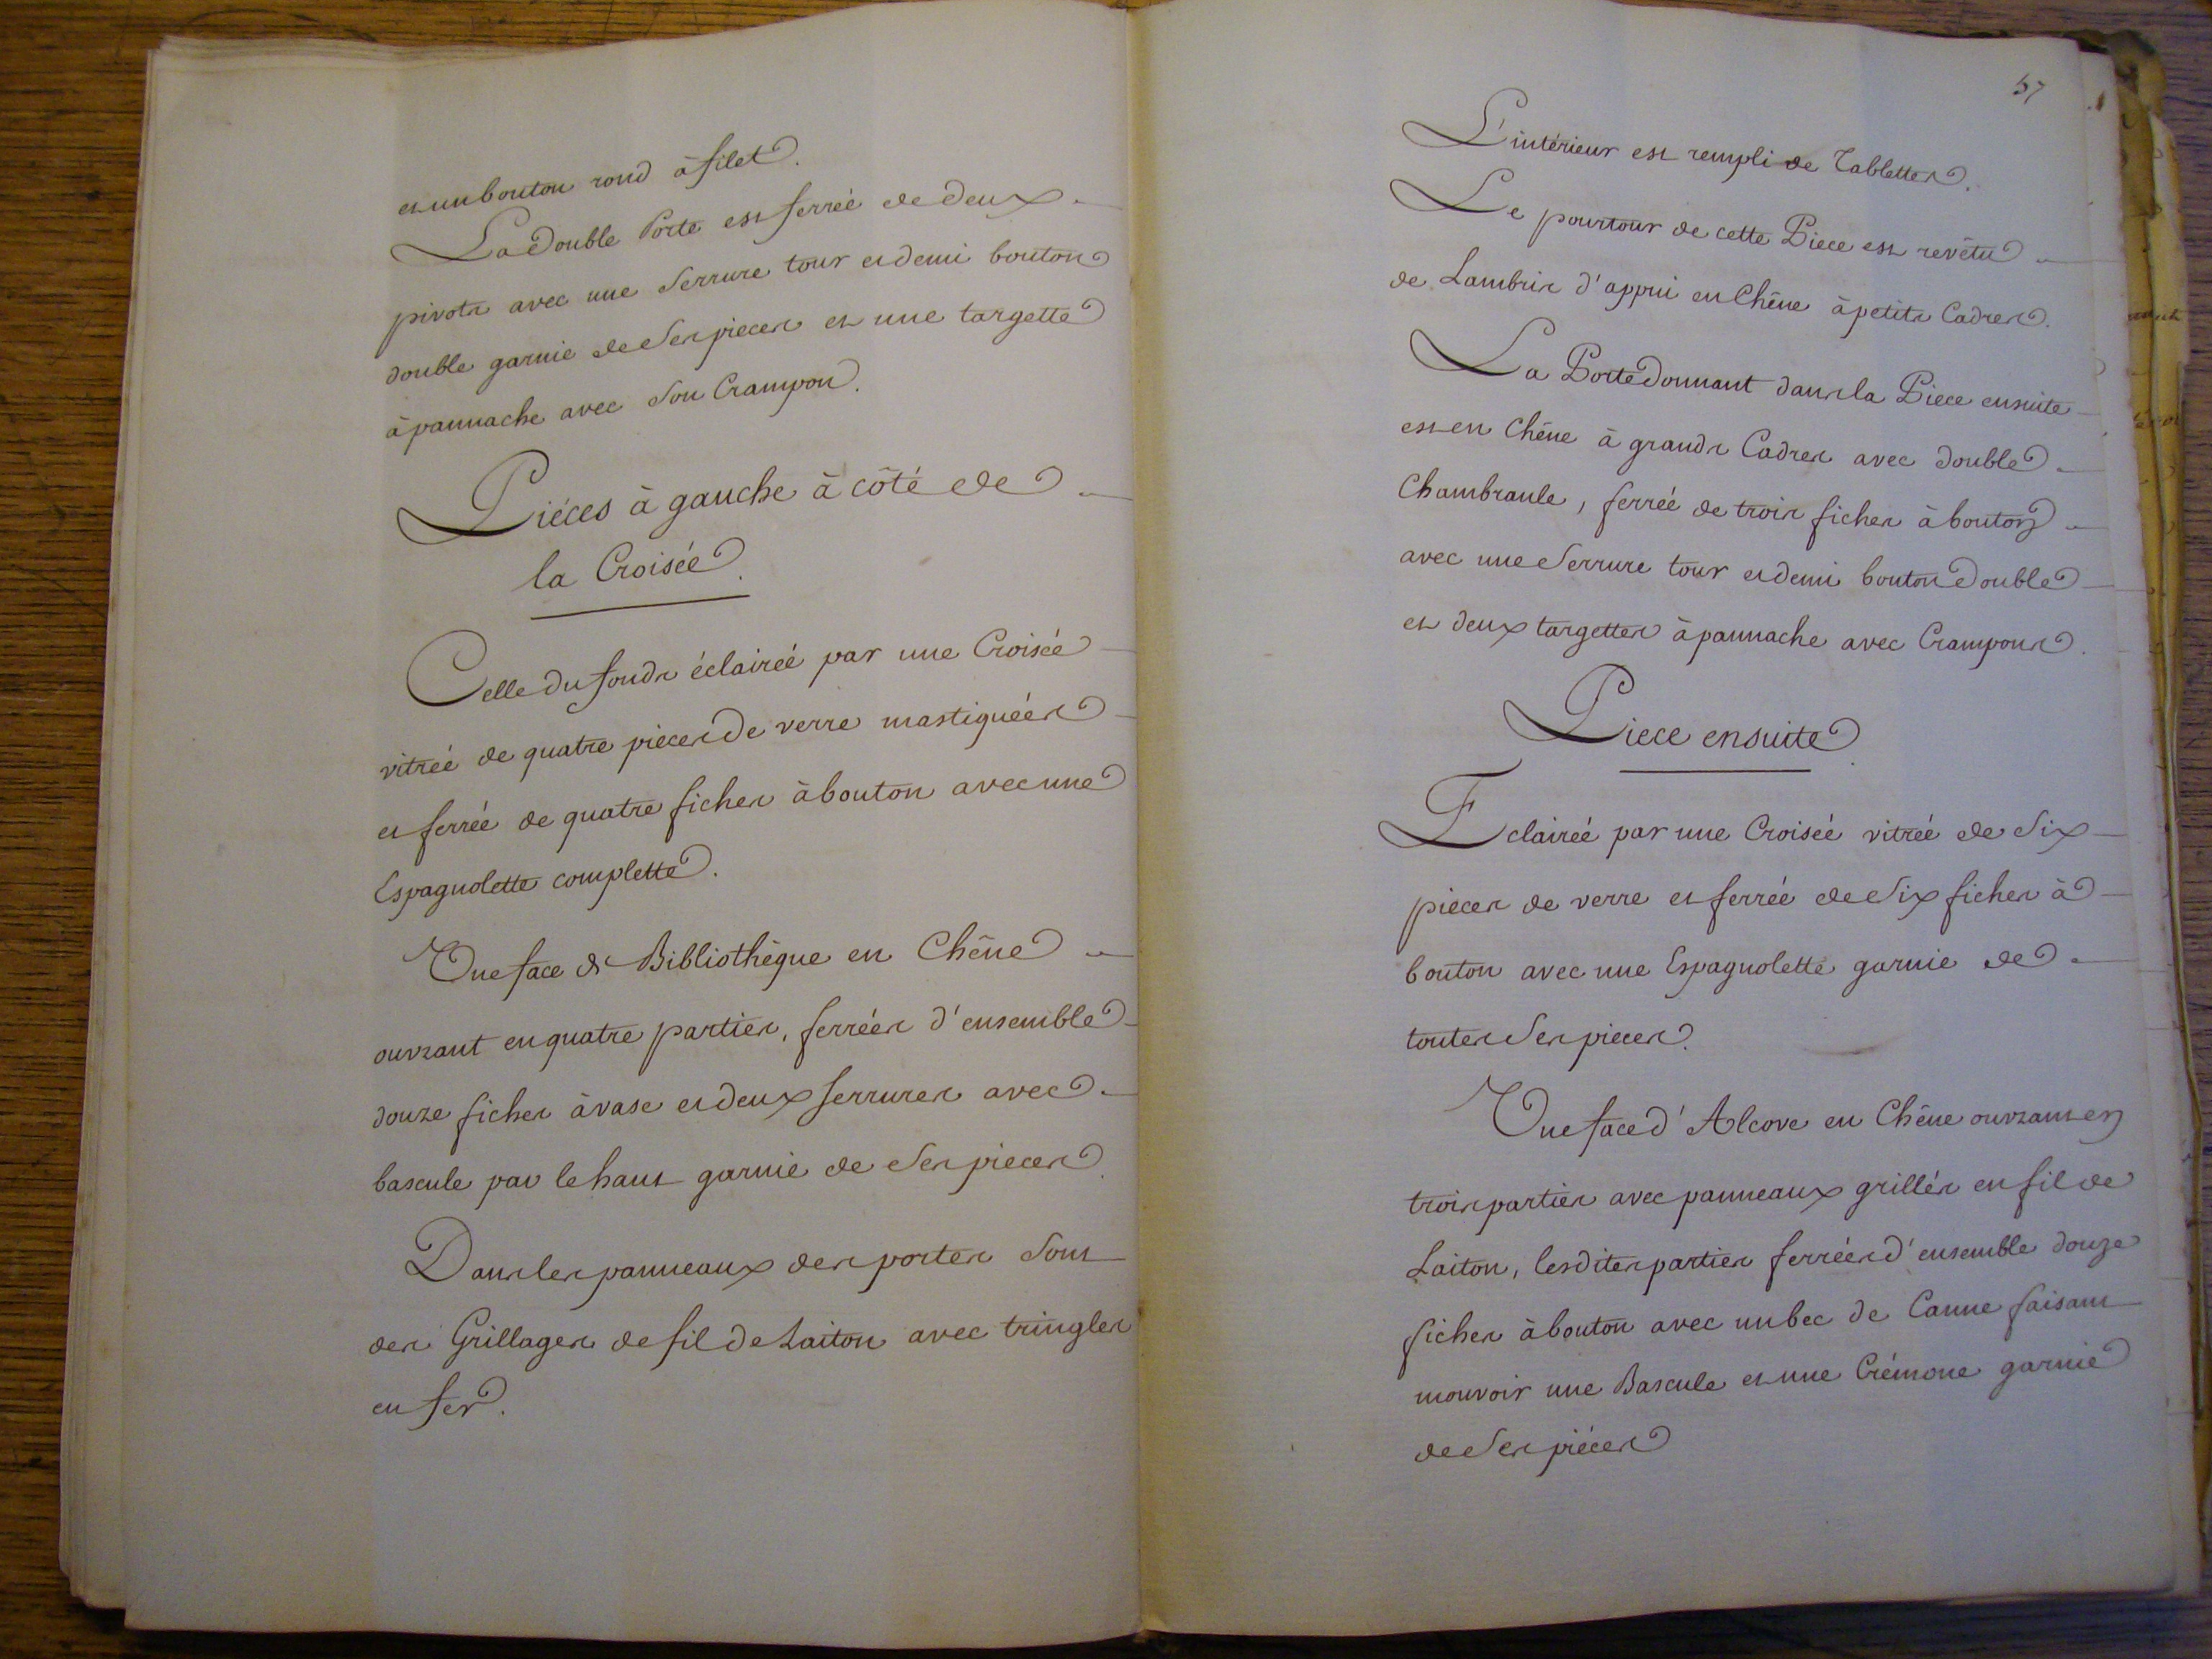 et un bouton rond à filet.
La double Porte est ferrée de deux
pivots avec une Serrure tour et demi bouton
double garnie de Ses pieces et une targette
à pannache avec Son Crampon.
Piéces à gauche à côté de
la Croisée.
Celle du fonds éclairée par une Croisée
vitrée de quatre pieces de verre mastiquées
et ferrée de quatre fiches à bouton avec une
Espagnolette complette.
Une face de Bibliothèque en Chêne
ouvrant en quatre parties, ferrées d'ensemble
douze fiches à vase et deux serrures avec
bascule par le haut garnie de Ses pieces.
Dans les panneaux des portes Sont
des Grillages de fil de Laiton avec tringles
en fer.
57
L'intérieur est rempli de Tablettes.
Le pourtour de cette Piece est revêtu
de Lambris d'appui en Chêne à petits Cadres.
La Porte donnant dans la Piece ensuite
est en Chêne à grands Cadres avec double
Chambranle, ferrée de trois fiches à bouton
avec une Serrure tour et demi bouton double
et deux targettes à pannache avec Crampons.
Piece ensuite.
Eclairée par une Croisée vitrée de Six
pieces de verre et ferrée de Six fiches à
bouton avec une Espagnolette garnie de
toutes Ses pieces.
Une face d'Alcove en Chêne ouvrant en
trois parties avec panneaux grillés en fil de
Laiton, lesdites parties ferrées d'ensemble douze
fiches à bouton avec un bec de Canne faisant
mouvoir une Bascule et une Crémone garnie
de Ses piéces